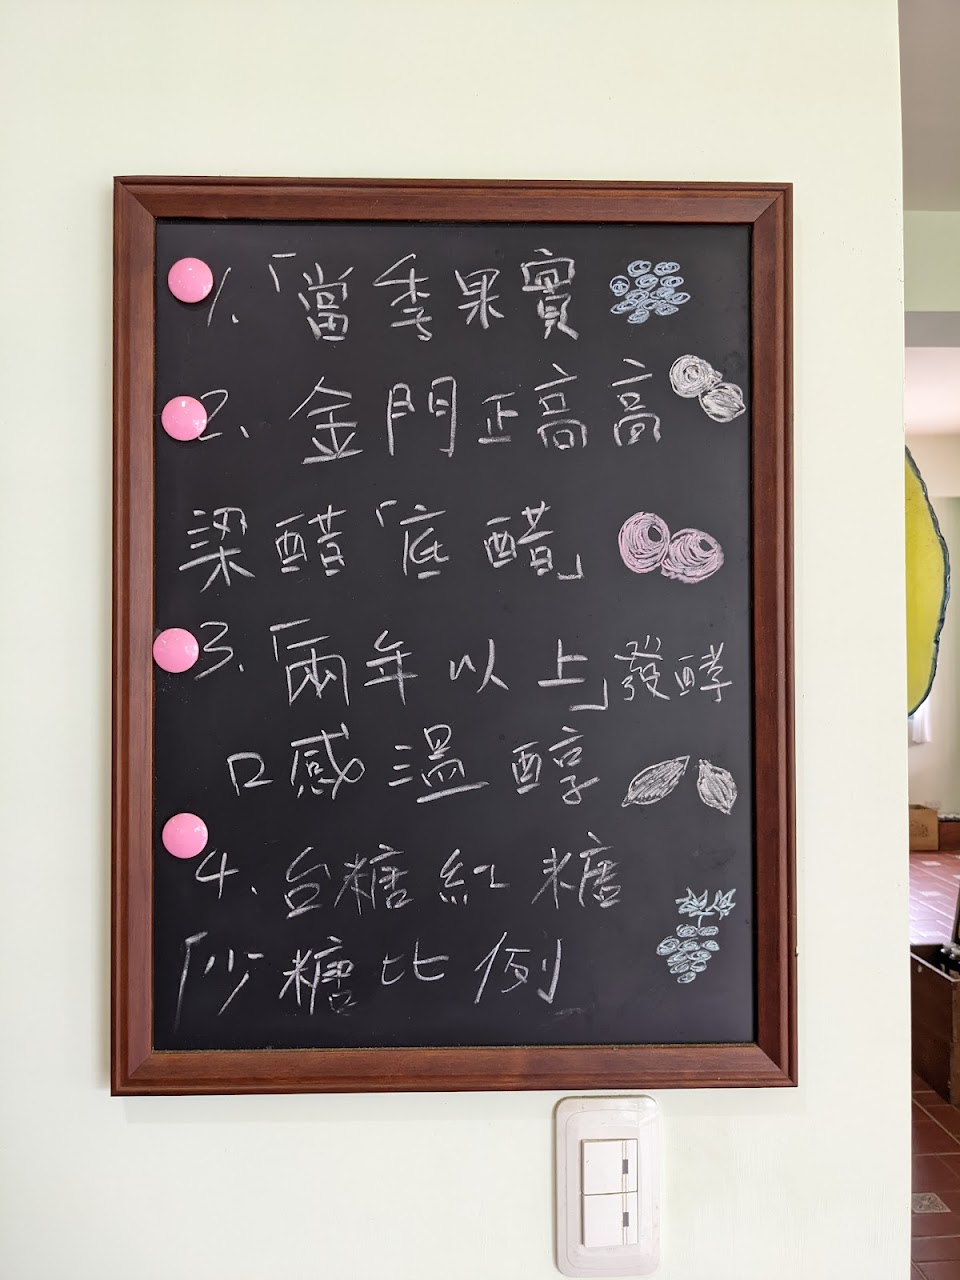 1.「當季果實
2、金門正高高
梁醋「底醋」
3.「兩年以上」發酵
口感溫醇
4.台糖紅糖
「少糖比例